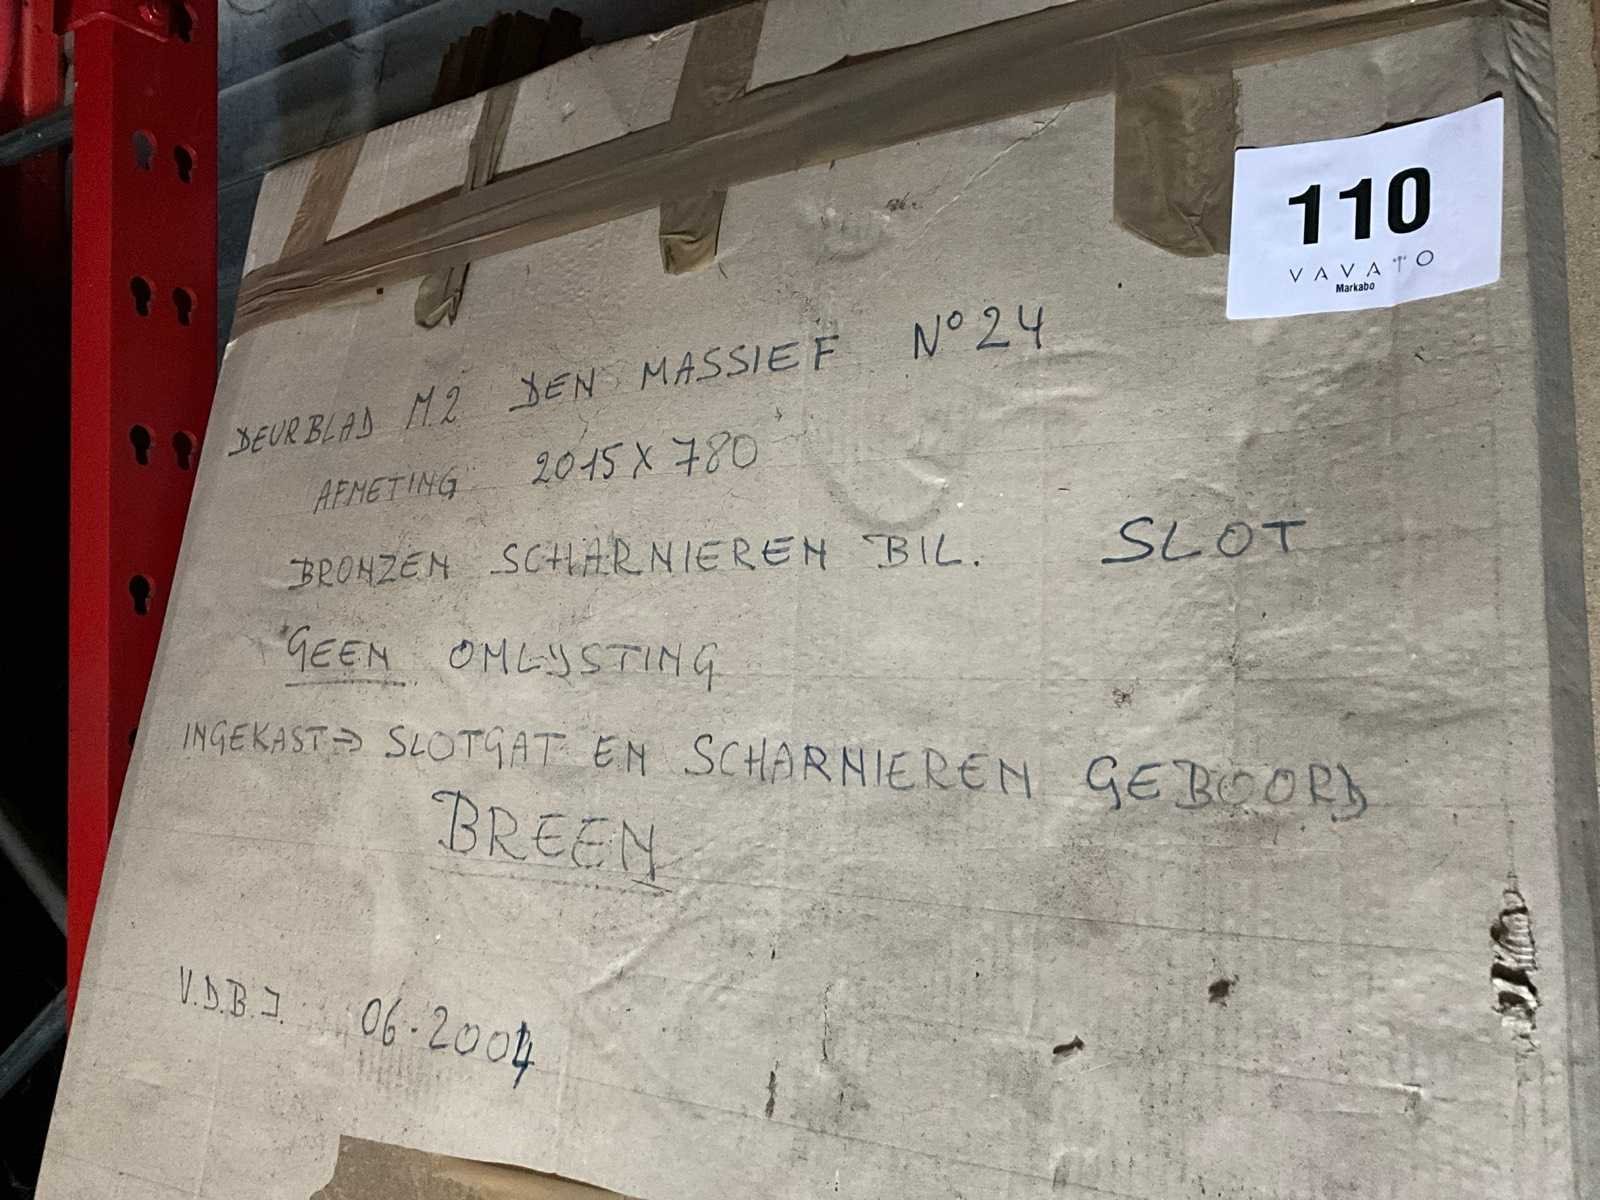 110
VAVATO
Markabo
DEURBLAD M2 DEN MASSIEF Nº 24
AFMETING 2015 X 780
BRONZEN SCHARNIEREN BIL. SLOT
GEEN OMLIJSTING
INGEKAST ⇒ SLOTGAT EN SCHARNIEREN GEBOORD
BREEN
V.D.B.J. 06.2004